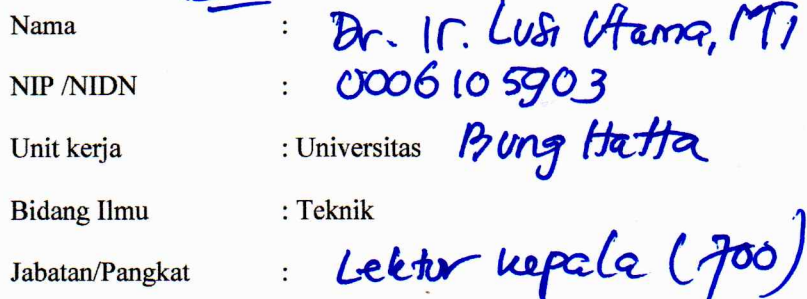 Nama : Dr. Ir. Lusi Utama, MT
NIP /NIDN : 0006105903
Unit kerja : Universitas Bung Hatta
Bidang Ilmu : Teknik
Jabatan/Pangkat : Lektor kepala (700)